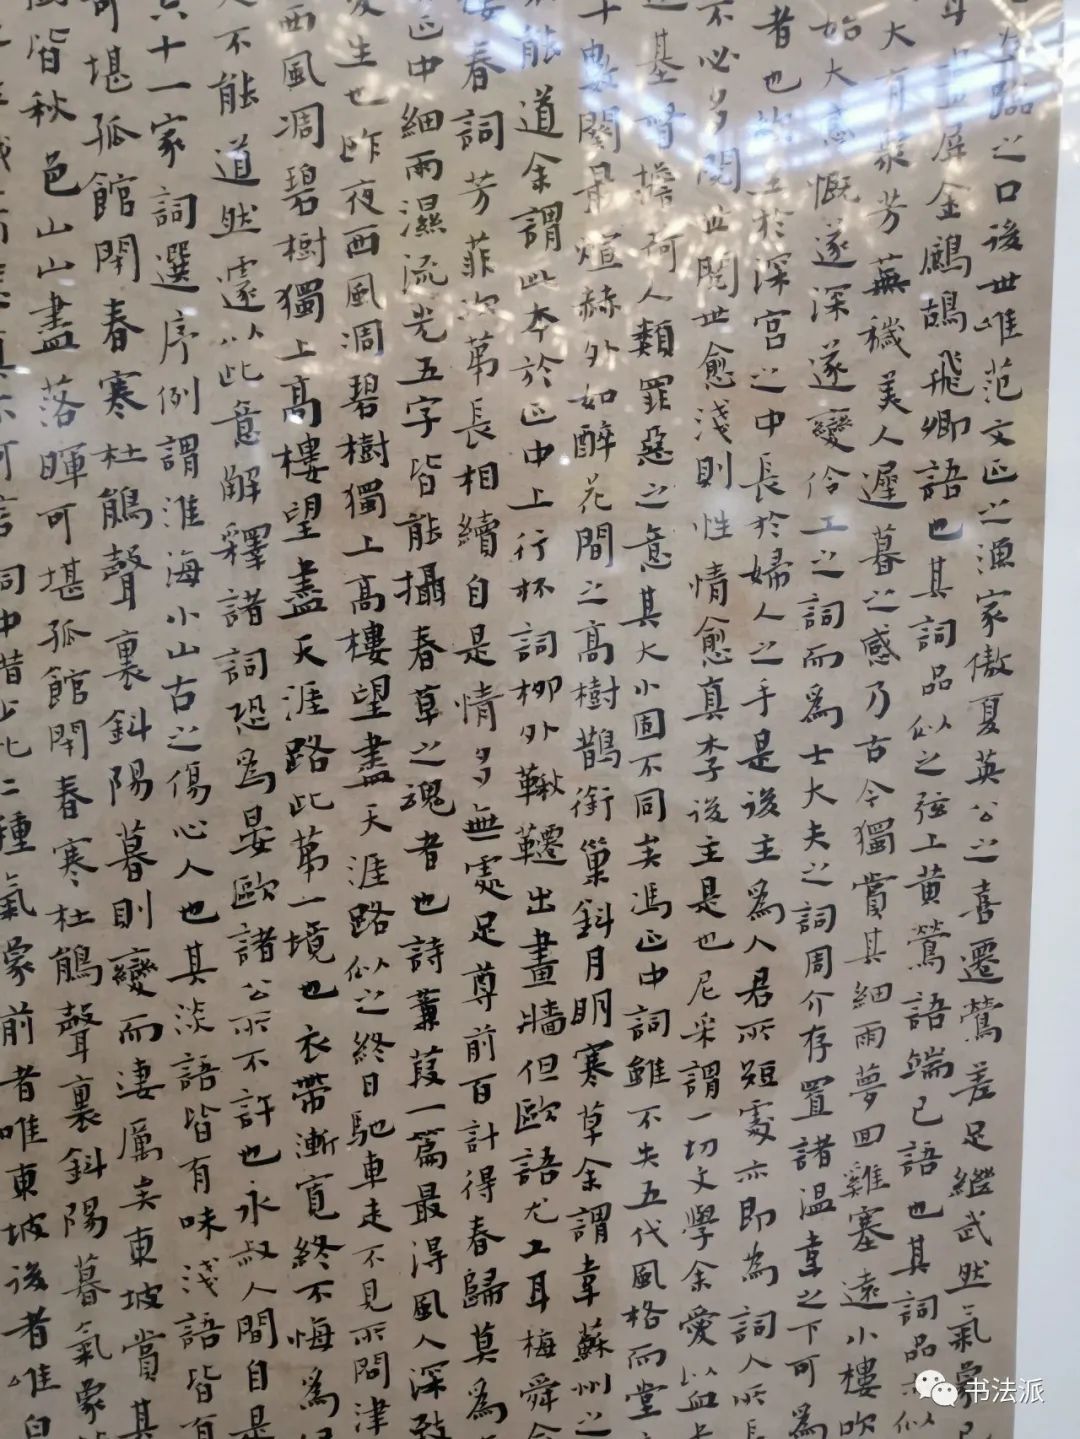 臨之口後世唯范文正之漁家傲夏英公之喜遷鶯差足繼武然氣象已
屏金鷓鴣飛卿語也其詞品似之弦上黃鶯語端己語也其詞品亦似
大有眾芳蕪穢美人遲暮之感乃古今獨賞其細雨夢回雞塞遠小樓吹
始大感慨遂深遂變伶工之詞而為士大夫之詞周介存置諸溫韋之下可為
者也故生於深宮之中長於婦人之手是後主為人君所短處亦即為詞人所長
不必多閱世閱世愈淺則性情愈真李後主是也尼采謂一切文學余愛以血
基督擔荷人類罪惡之意其大小固不同矣馮正中詞雖不失五代風格而堂
十數闋最煊赫外如醉花間之高樹鵲銜巢斜月明寒草余謂韋蘇州之
能道余謂此本於正中上行杯詞柳外鞦韆出畫牆但歐語尤工耳梅舜俞
春詞芳菲次第長相續自是情多無處足尊前百計得春歸莫為
正中細雨濕流光五字皆能攝春草之魂者也詩蒹葭一篇最得風人深致
生也昨夜西風凋碧樹獨上高樓望盡天涯路似之終日馳車走不見所問津
西風凋碧樹獨上高樓望盡天涯路此第一境也衣帶漸寬終不悔為
不能道然遽以此意解釋諸詞恐為晏歐諸公所不許也永叔人間自是
六十一家詞選序例謂淮海小山古之傷心人也其淡語皆有味淺語皆有
可堪孤館閉春寒杜鵑聲裏斜陽暮則變而淒厲矣東坡賞其
皆秋色山山盡落暉可堪孤館閉春寒杜鵑聲裏斜陽暮氣象
詞中惜少此二種氣象前者唯東坡後者唯白
书法派